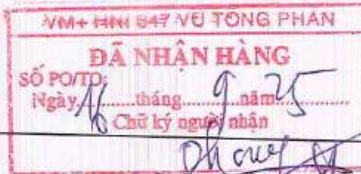 VM+ HNI 647 VŨ TÔNG PHAN
ĐÃ NHẬN HÀNG
SỐ PO/TO:
Ngày 16 tháng 9 năm 25
Chữ ký người nhận